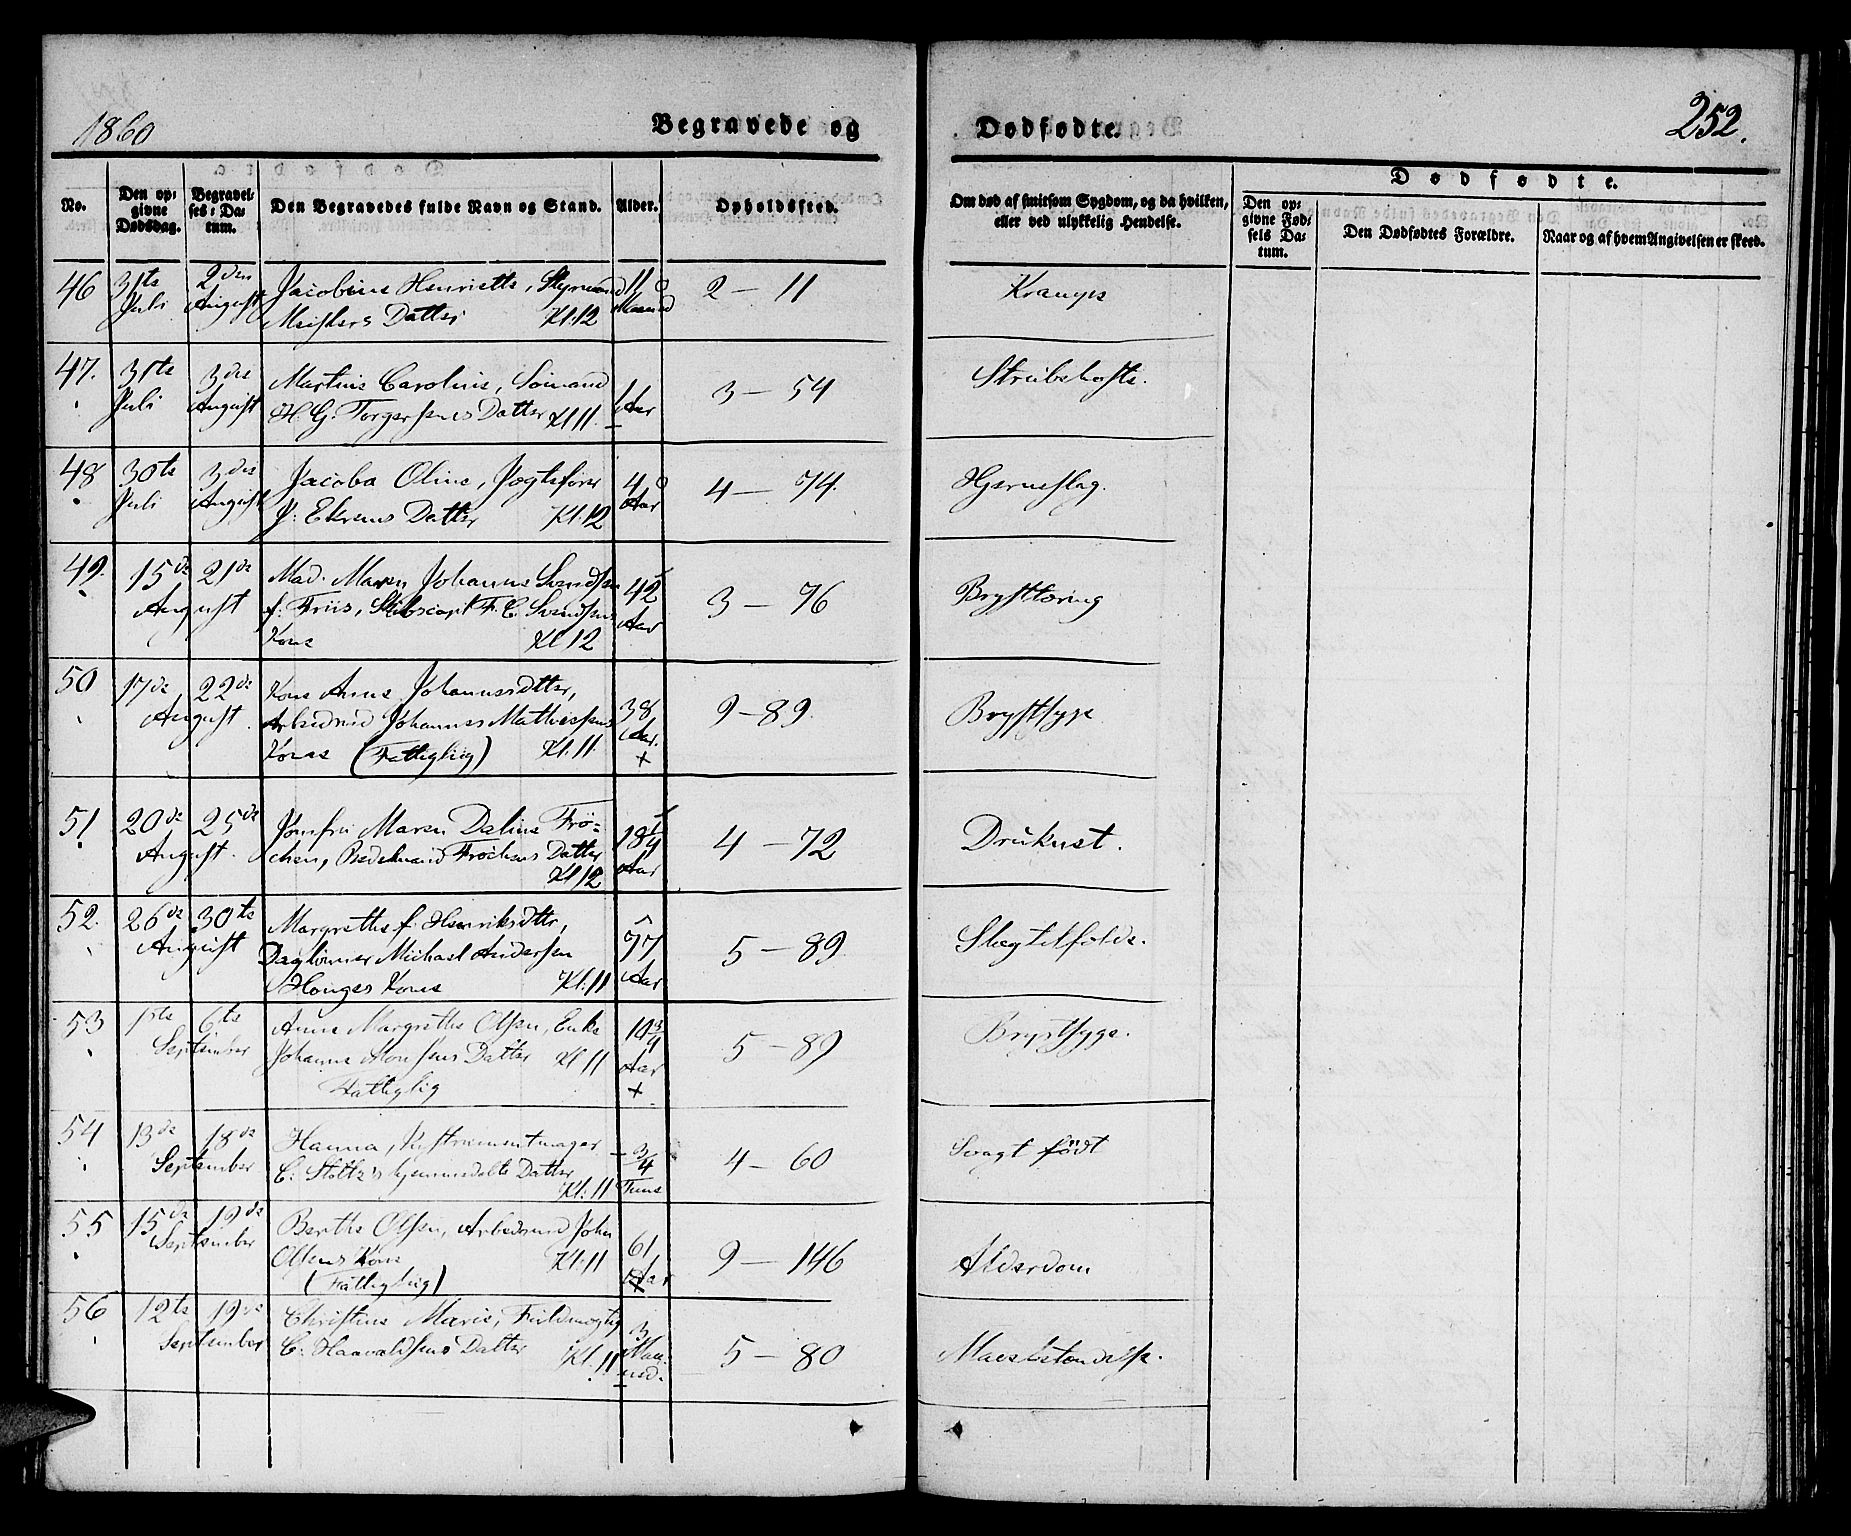 1860
Begravede og Dødfødte.
252.
No.
Den opgivne Dødsdag.
Begravelses-Datum.
Den Begravedes fulde Navn og Stand.
Alder.
Opholdssted.
Om død af smitsom Sygdom, og da hvilken, eller ved ulykkelig Hendelse.
Dødfødte.
Den opgivne Fødsels Datum.
Den Dødfødtes Forældre.
Naar og af hvem Angivelsen er skeed.
46 31te Juli 2den August Jacobine Henriette, Styrmand 11 Maaned 2 – 11 Krampe
Meisters Datter Kl. 12
47. 31te Juli 3die August Martine Caroline, Sömand 1 Aar 3 – 54 Strubehoste.
H. G. Torgersens Datter Kl 11.
48 30te Juli 3die August Jacoba Oline, Jogtefører 4 Aar 4 – 74. Hjerneslag.
J. Ekrens Datter Kl. 12
49. 15de August 21de Mad. Maren Johanne Svendsen 42 Aar 3 – 76 Brysttæring
f. Friis, Skibscapt F. C. Svendsens
Kone Kl 12
50 17de August 22de Kone Anne Johannesdtter, 38 Aar. + 9 – 89. Brystsyge
Arbeidsmd Johannes Mathiessens
Kone (Fattiglig) Kl. 11.
51. 20de August 25de Jomfru Maren Daline Frö- 18 1/4 Aar 4 – 72 Druknet.
chen, Bedemand Fröchens Datter
Kl 12
52. 26de August 30te Margrethe f. Henriksdttr, 77 Aar 5 – 89. Slagtilfælde.
Daglönner Michael Andersen
Honges Kone Kl. 11
53 1ste September 6te Anne Margrethe Olsen, Enke 10 3/4 Aar + 5 – 89 Brystsyge.
Johanne Monsens Datter Kl 11
Fattiglig
54 13de September 18de Hanna, Instrumentmager 3/4 Time 4 – 60 Svagt født
C. Stoltz's hjemmedøbte Datter
Kl. 11
55 15de September 19de Berthe Olsen, Arbeidsmd John 61 Aar + 9 – 146 Alderdom
Olsens Kone Kl. 11
(Fattiglig)
56 12te September 19de Christine Marie, Fuldmægtig 3 Maaned. 5 – 80 Mavebetændelse.
C. Haavaldsens Datter Kl. 11